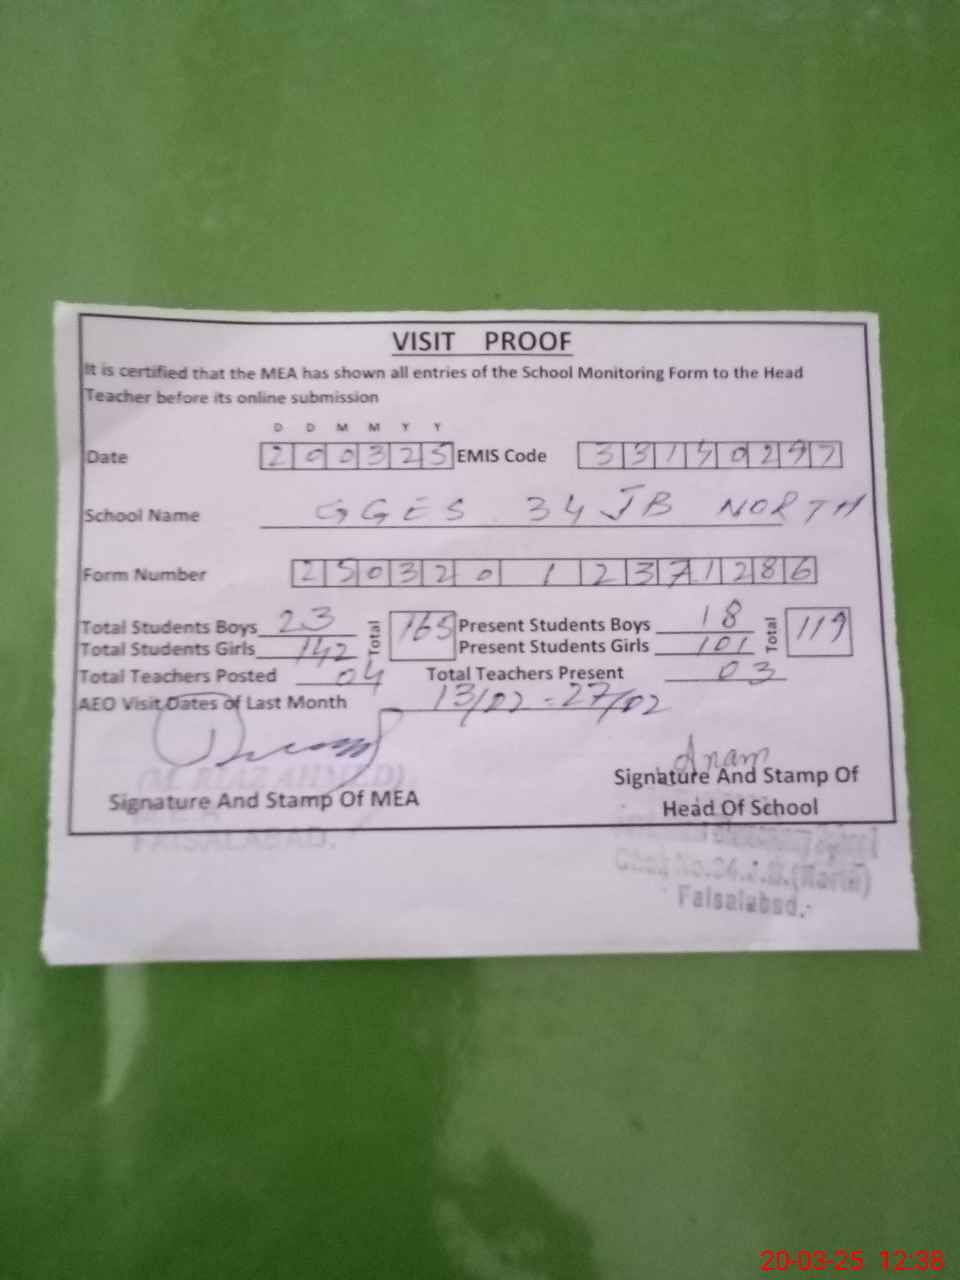 VISIT PROOF
It is certified that the MEA has shown all entries of the School Monitoring Form to the Head
Teacher before its online submission
D D M M Y Y
Date 200325 EMIS Code 33150297
School Name GGES 34 JB NORTH
Form Number 250320 1 2371286
Total Students Boys 23 Total 165 Present Students Boys 18 Total 119
Total Students Girls 142 Present Students Girls 101
Total Teachers Posted 04 Total Teachers Present 03
AEO Visit Dates of Last Month 13/02 - 27/02
Anam
(M. RIAZ AHMED)
Signature And Stamp Of MEA
Signature And Stamp Of
Head Of School
FAISALABAD.
Elementary School
Chak No.34.J.B.(North)
Faisalabad.
20-03-25 12:38